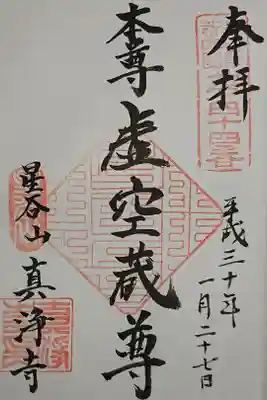 奉拝
平成三十年
一月二十七日
本尊
虚空蔵尊
星谷山
真浄寺